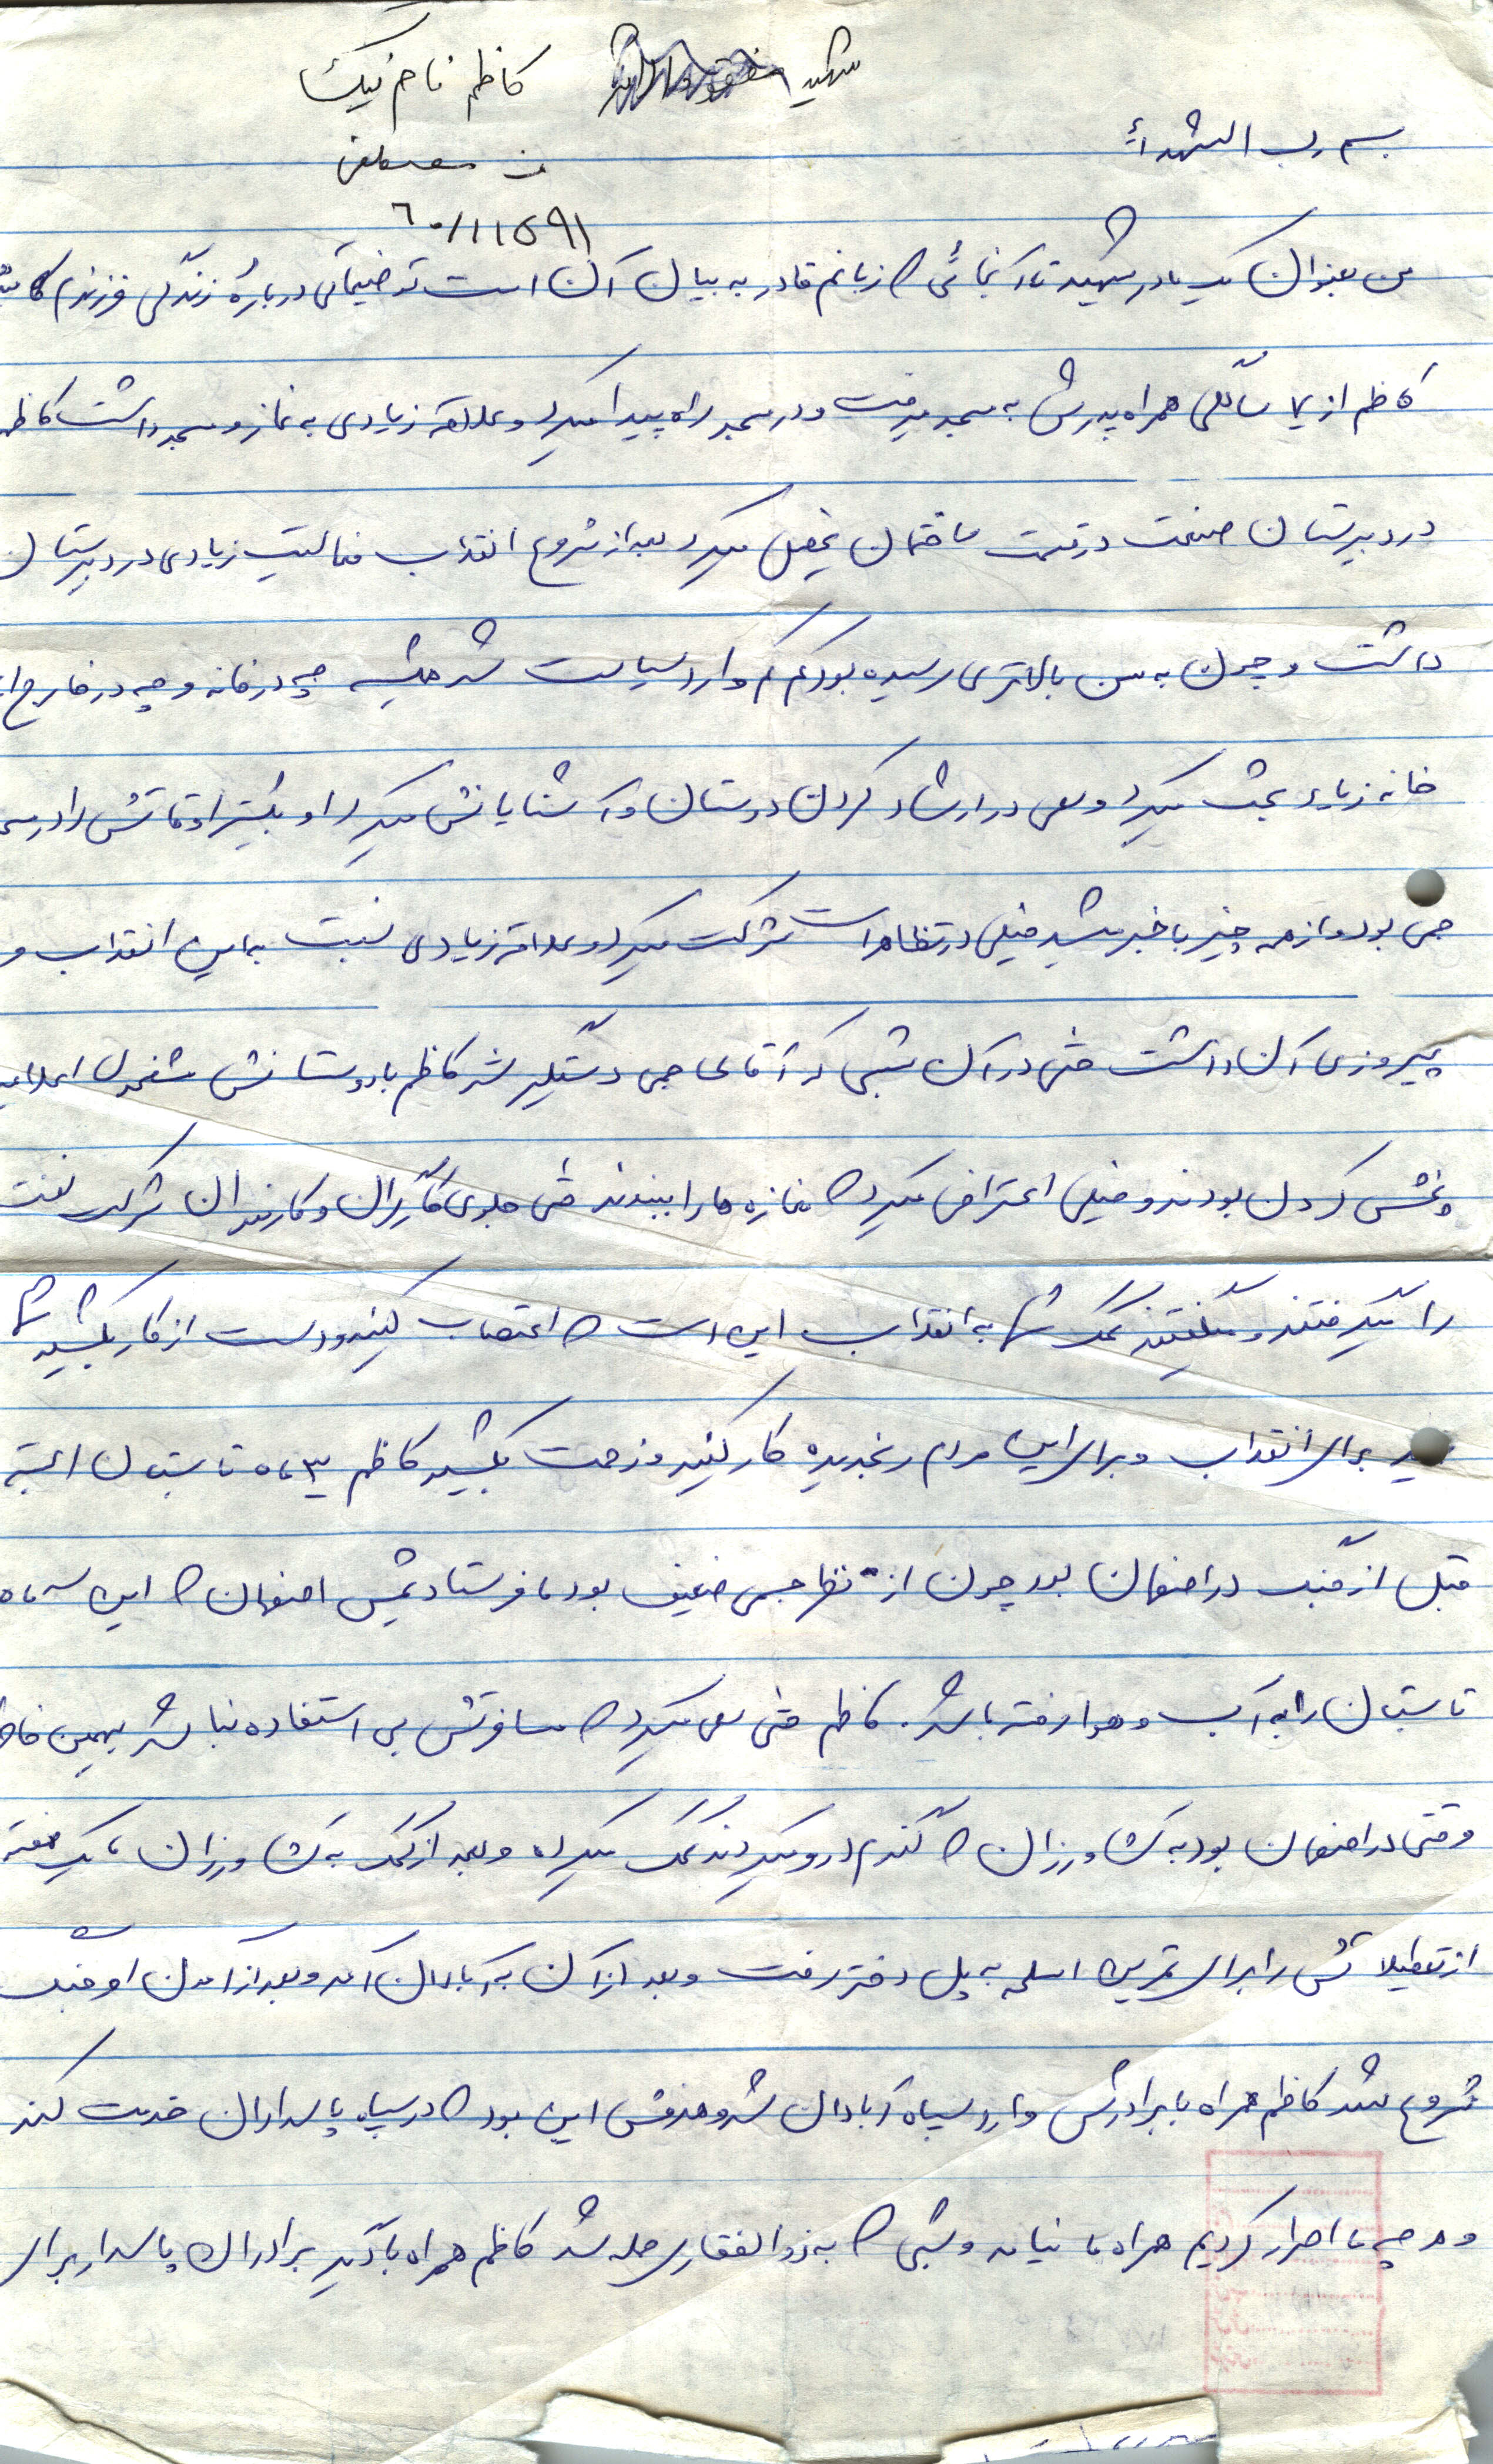 شهید کاظم ناظم نیک
بسم رب الشهداء
ف مصطفی
۶۰/۱۱۵۹۱
من بعنوان یک مادر شهید تا آنجائی که زبانم قادر به بیان آن است توضیحاتی درباره زندگی فرزندم
کاظم از سالگی همراه پدرش به مسجد میرفت و در مسجد راه پیدا میکرد و علاقه زیادی به نماز و مسجد داشت کاظم
در دبیرستان صنعت در قسمت ساختمان تحصیل میکرد بعد از شروع انقلاب فعالیت زیادی در دبیرستان
داشت و چون به سن بالاتری رسیده بود کم کم وارد سیاست شد همیشه چه در خانه و چه در خارج از
خانه زیاد بحث میکرد و سعی در ارشاد کردن دوستان و آشنایانش میکرد او بیشتر اوقاتش را در
جمی بود و از همه چیز با خبر میشد خیلی در تظاهرات شرکت میکرد و علاقه زیادی نسبت به این انقلاب و
پیروزی آن داشت حتی در آن شبی که آقای جمی دستگیر شد کاظم با دوستانش مشغول اعلامیه
پخش کردن بودند و خیلی اعتراض میکرد که مغازه ها را ببندند حتی جلوی کارگران و کارمندان شرکت نفت
را میگرفتند و میگفتند کمک شما به انقلاب این است که اعتصاب کنید و دست از کار بکشید شما
برای انقلاب و برای این مردم رنجدیده کار کنید و زحمت بکشید کاظم ۳ ماه تابستان البته
قبل از جنگ در اصفهان بود چون از نظر جسمی ضعیف بود ما فرستادیمش اصفهان که این سه ماه
تابستان را به آب و هوا رفته باشد. کاظم حتی سعی میکرد که مسافرتش بی استفاده نباشد بهمین خاطر
وقتی در اصفهان بود به کشاورزان که گندم درو میکردند کمک میکرد و بعد از کمک به کشاورزان یک هفته
از تعطیلاتش را برای تمرین اسلحه به پل دختر رفت و بعد از آن به آبادان آمد و بعد از آمدن او جنگ
شروع شد کاظم همراه با برادرش وارد سپاه آبادان شد و هدفش این بود که در سپاه پاسداران خدمت کند
و هر چه ما اصرار کردیم همراه ما نیامد و شبی که به ذوالفقاری حمله شد کاظم همراه با دیگر برادران پاسدار برای